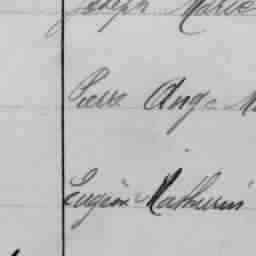 Joseph Marie
Pierre Ange M
Eugène Mathurin